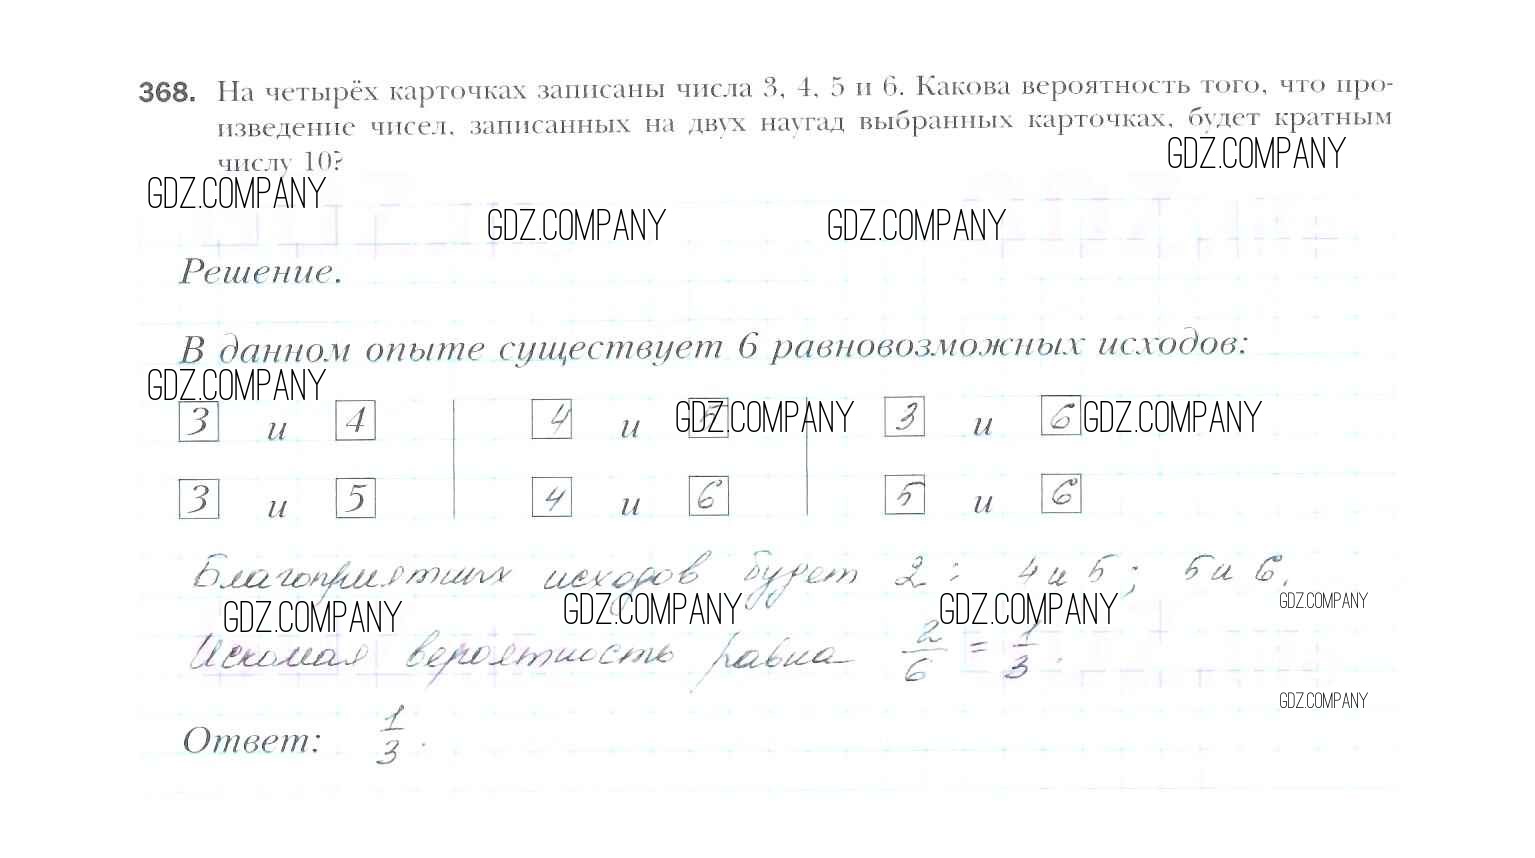 368. На четырёх карточках записаны числа 3, 4, 5 и 6. Какова вероятность того, что про-
изведение чисел, записанных на двух наугад выбранных карточках, будет кратным
числу 10?
GDZ.COMPANY
GDZ.COMPANY
GDZ.COMPANY GDZ.COMPANY
Решение.
В данном опыте существует 6 равновозможных исходов:
GDZ.COMPANY
3 и 4 4 и GDZ.COMPANY 3 и 6 GDZ.COMPANY
3 и 5 4 и 6 5 и 6
Благоприятных исходов будет 2: 4 и 5; 5 и 6.
GDZ.COMPANY GDZ.COMPANY GDZ.COMPANY GDZ.COMPANY
Искомая вероятность равна 2/6 = 1/3.
GDZ.COMPANY
Ответ: 1/3.